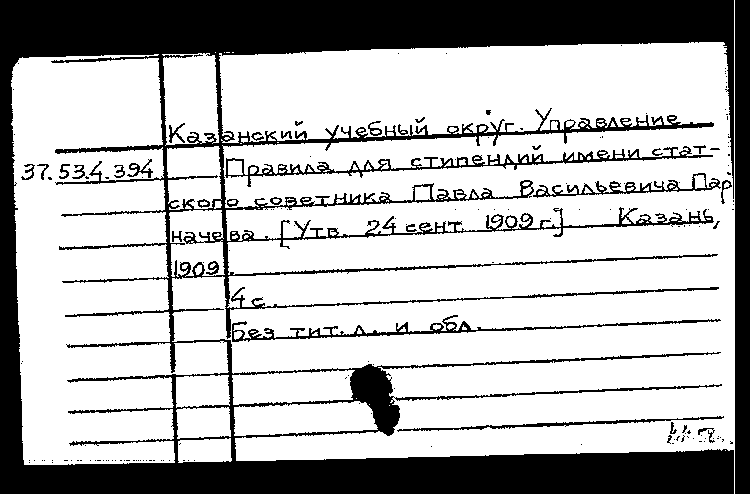 Казанский учебный округ. Управление.
37.53.4.394 Правила для стипендий имени стат-
ского советника Павла Васильевича Пар
начева. [Утв. 24 сент. 1909 г.] Казань,
1909.
4 с.
Без тит. л. и обл.